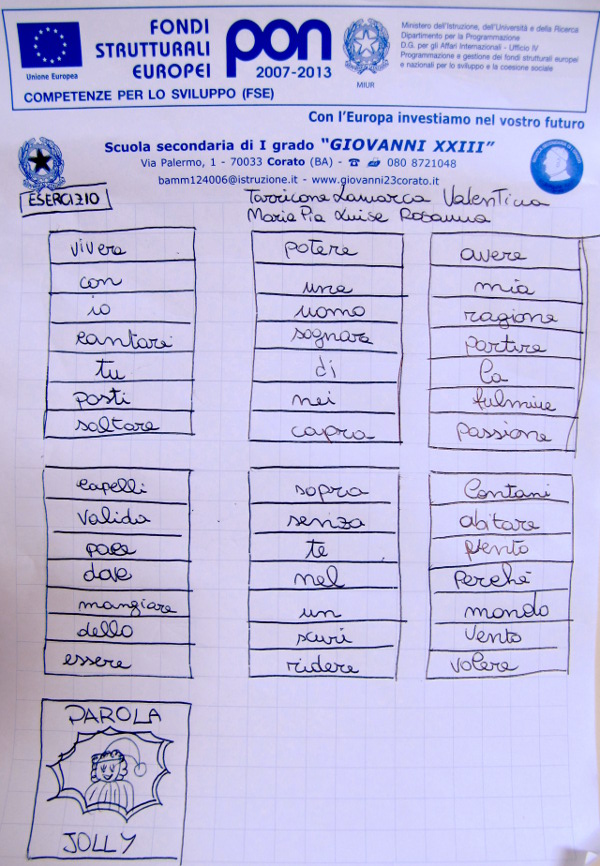 FONDI
STRUTTURALI
EUROPEI
pon
2007-2013
Unione Europea
COMPETENZE PER LO SVILUPPO (FSE)
MIUR
Ministero dell'Istruzione, dell'Università e della Ricerca
Dipartimento per la Programmazione
D.G. per gli Affari Internazionali - Ufficio IV
Programmazione e gestione dei fondi strutturali europei
e nazionali per lo sviluppo e la coesione sociale
Con l'Europa investiamo nel vostro futuro
Scuola secondaria di I grado "GIOVANNI XXIII"
Via Palermo, 1 - 70033 Corato (BA) - 080 8721048
bamm124006@istruzione.it - www.giovanni23corato.it
ESERCIZIO
Tarricone Lamarca Valentina
Maria Pia Luise Rosanna
vivere
con
io
cantare
tu
posti
saltare
potere
una
uomo
sognare
di
nei
capra
avere
mia
ragione
partire
la
fulmine
passione
capelli
valida
pace
dove
mangiare
dello
essere
sopra
senza
te
nel
un
scuri
ridere
lontani
abitare
perché
mondo
vento
volere
PAROLA
JOLLY